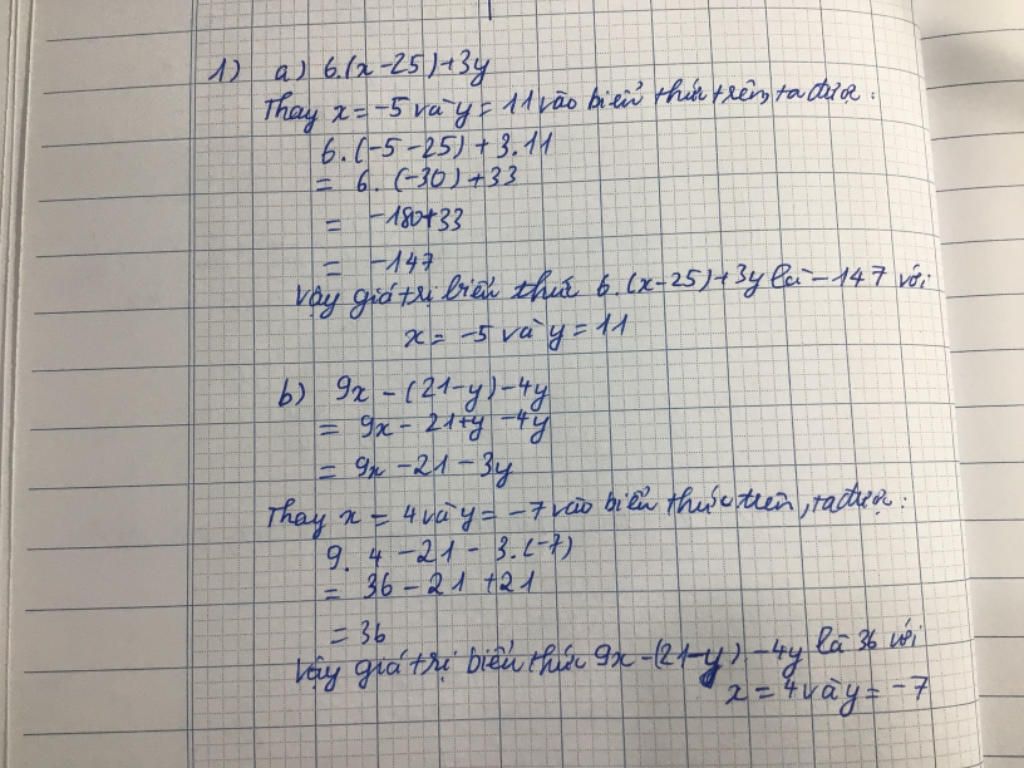 1) a) 6.(x-25)+3y
Thay x = -5 và y = 11 vào biểu thức trên, ta được:
6.(-5-25) + 3.11
= 6. (-30) + 33
= -180+33
= -147
Vậy giá trị biểu thức 6.(x-25)+3y là -147 với
x = -5 và y = 11
b) 9x - (21-y) - 4y
= 9x - 21+y - 4y
= 9x - 21 - 3y
Thay x = 4 và y = -7 vào biểu thức trên, ta được:
9. 4 - 21 - 3.(-7)
= 36 - 21 + 21
= 36
Vậy giá trị biểu thức 9x - (21-y) - 4y là 36 với
x = 4 và y = -7